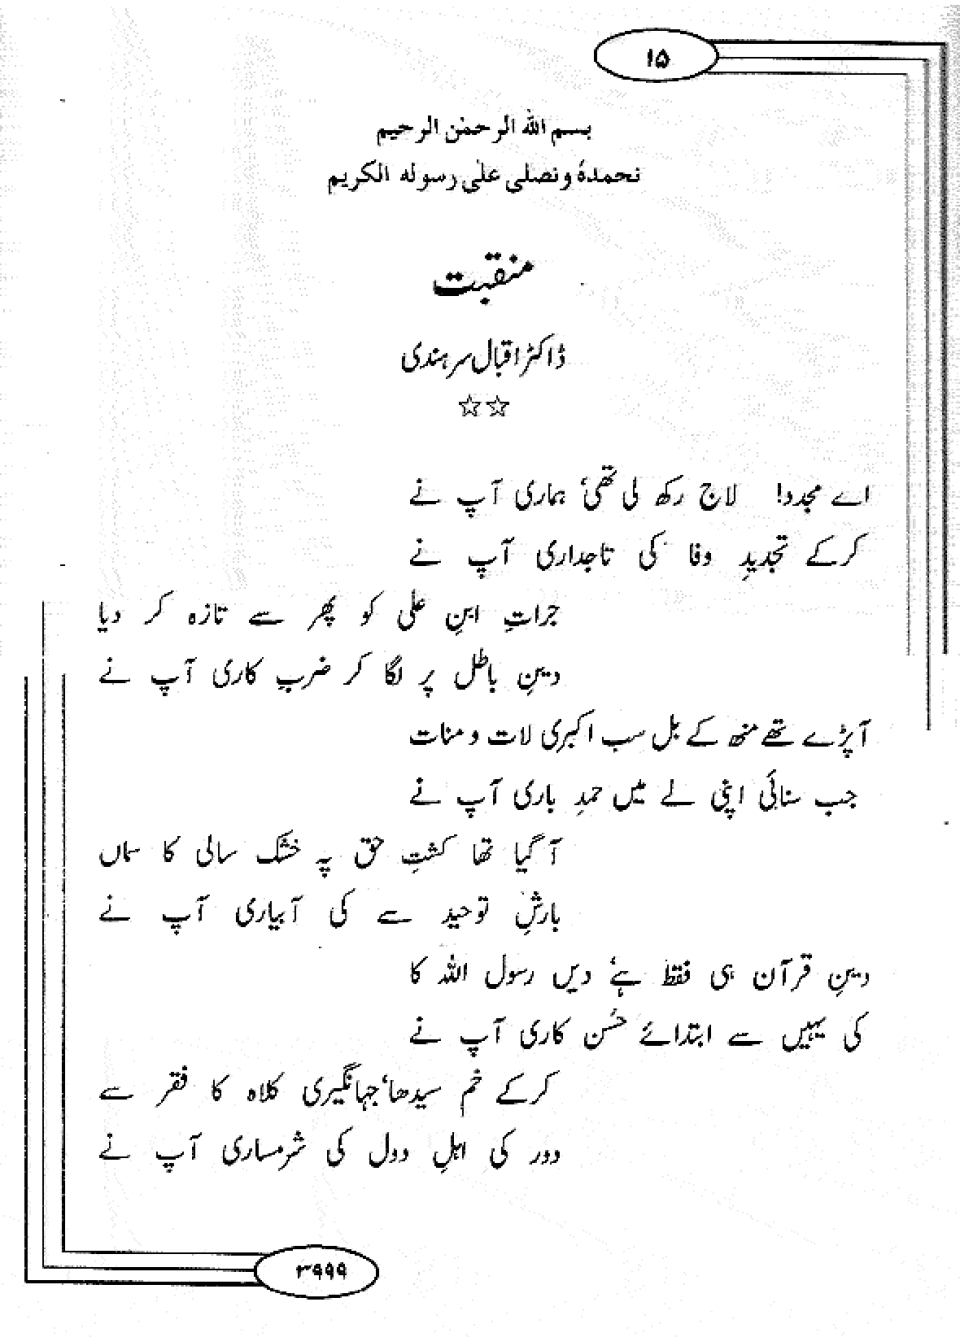 ۱۵
بسم اللہ الرحمٰن الرحیم
نحمدہٗ ونصلی علیٰ رسولہ الکریم
منقبت
ڈاکٹر اقبال سرہندی
☆☆
اے مجدد! لاج رکھ لی تھی، ہماری آپ نے
کرکے تجدیدِ وفا کی تاجداری آپ نے
جراتِ ابنِ علی کو پھر سے تازہ کر دیا
دینِ باطل پر لگا کر ضربِ کاری آپ نے
آپڑے تھے منھ کے بل سب اکبری لات و منات
جب سنائی اپنی لے میں حمدِ باری آپ نے
آ گیا تھا کشتِ حق پہ خشک سالی کا سماں
بارشِ توحید سے کی آبیاری آپ نے
دینِ قرآن ہی فقط ہے، دیں رسول اللہ کا
کی یہیں سے ابتدائے حُسن کاری آپ نے
کرکے خم سیدھا، جہانگیری کلاہ کا فقر سے
دور کی اہلِ دول کی شرمساری آپ نے
۳۹۹۹